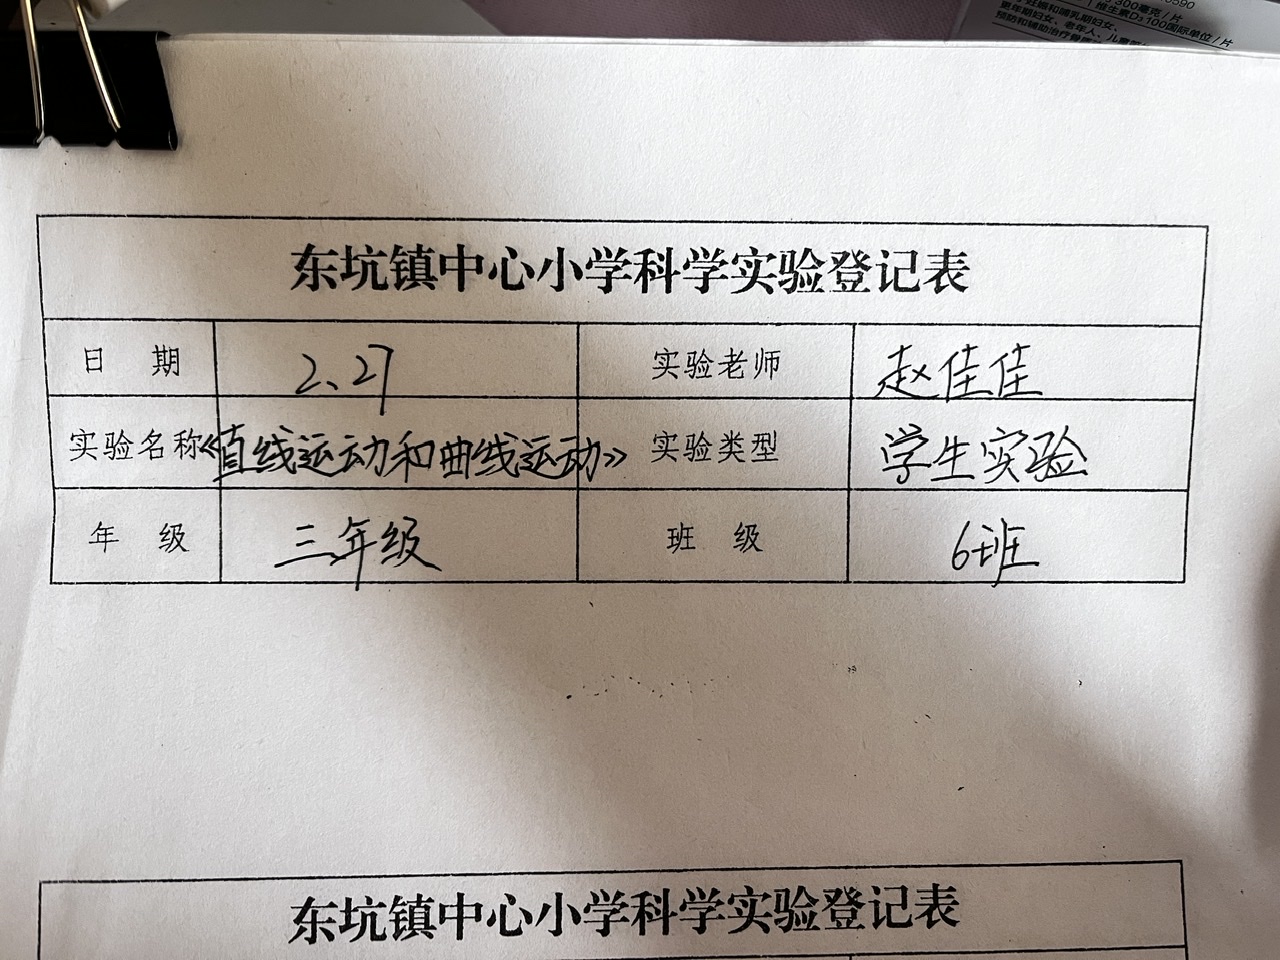 300毫克/片
维生素D₃100国际单位/片
更年期妇女、老年人、儿童
东坑镇中心小学科学实验登记表
日 期 2、27 实验老师 赵佳佳
实验名称 《直线运动和曲线运动》 实验类型 学生实验
年 级 三年级 班 级 6班
东坑镇中心小学科学实验登记表